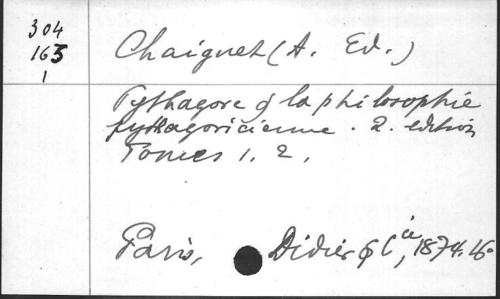 304
165
1
Chaignet (A. Ed.)
Pythagore & la philosophie
pythagoricienne. 2. edition
Tomes 1. 2.
Paris, Didier & Cie, 1874. 16o